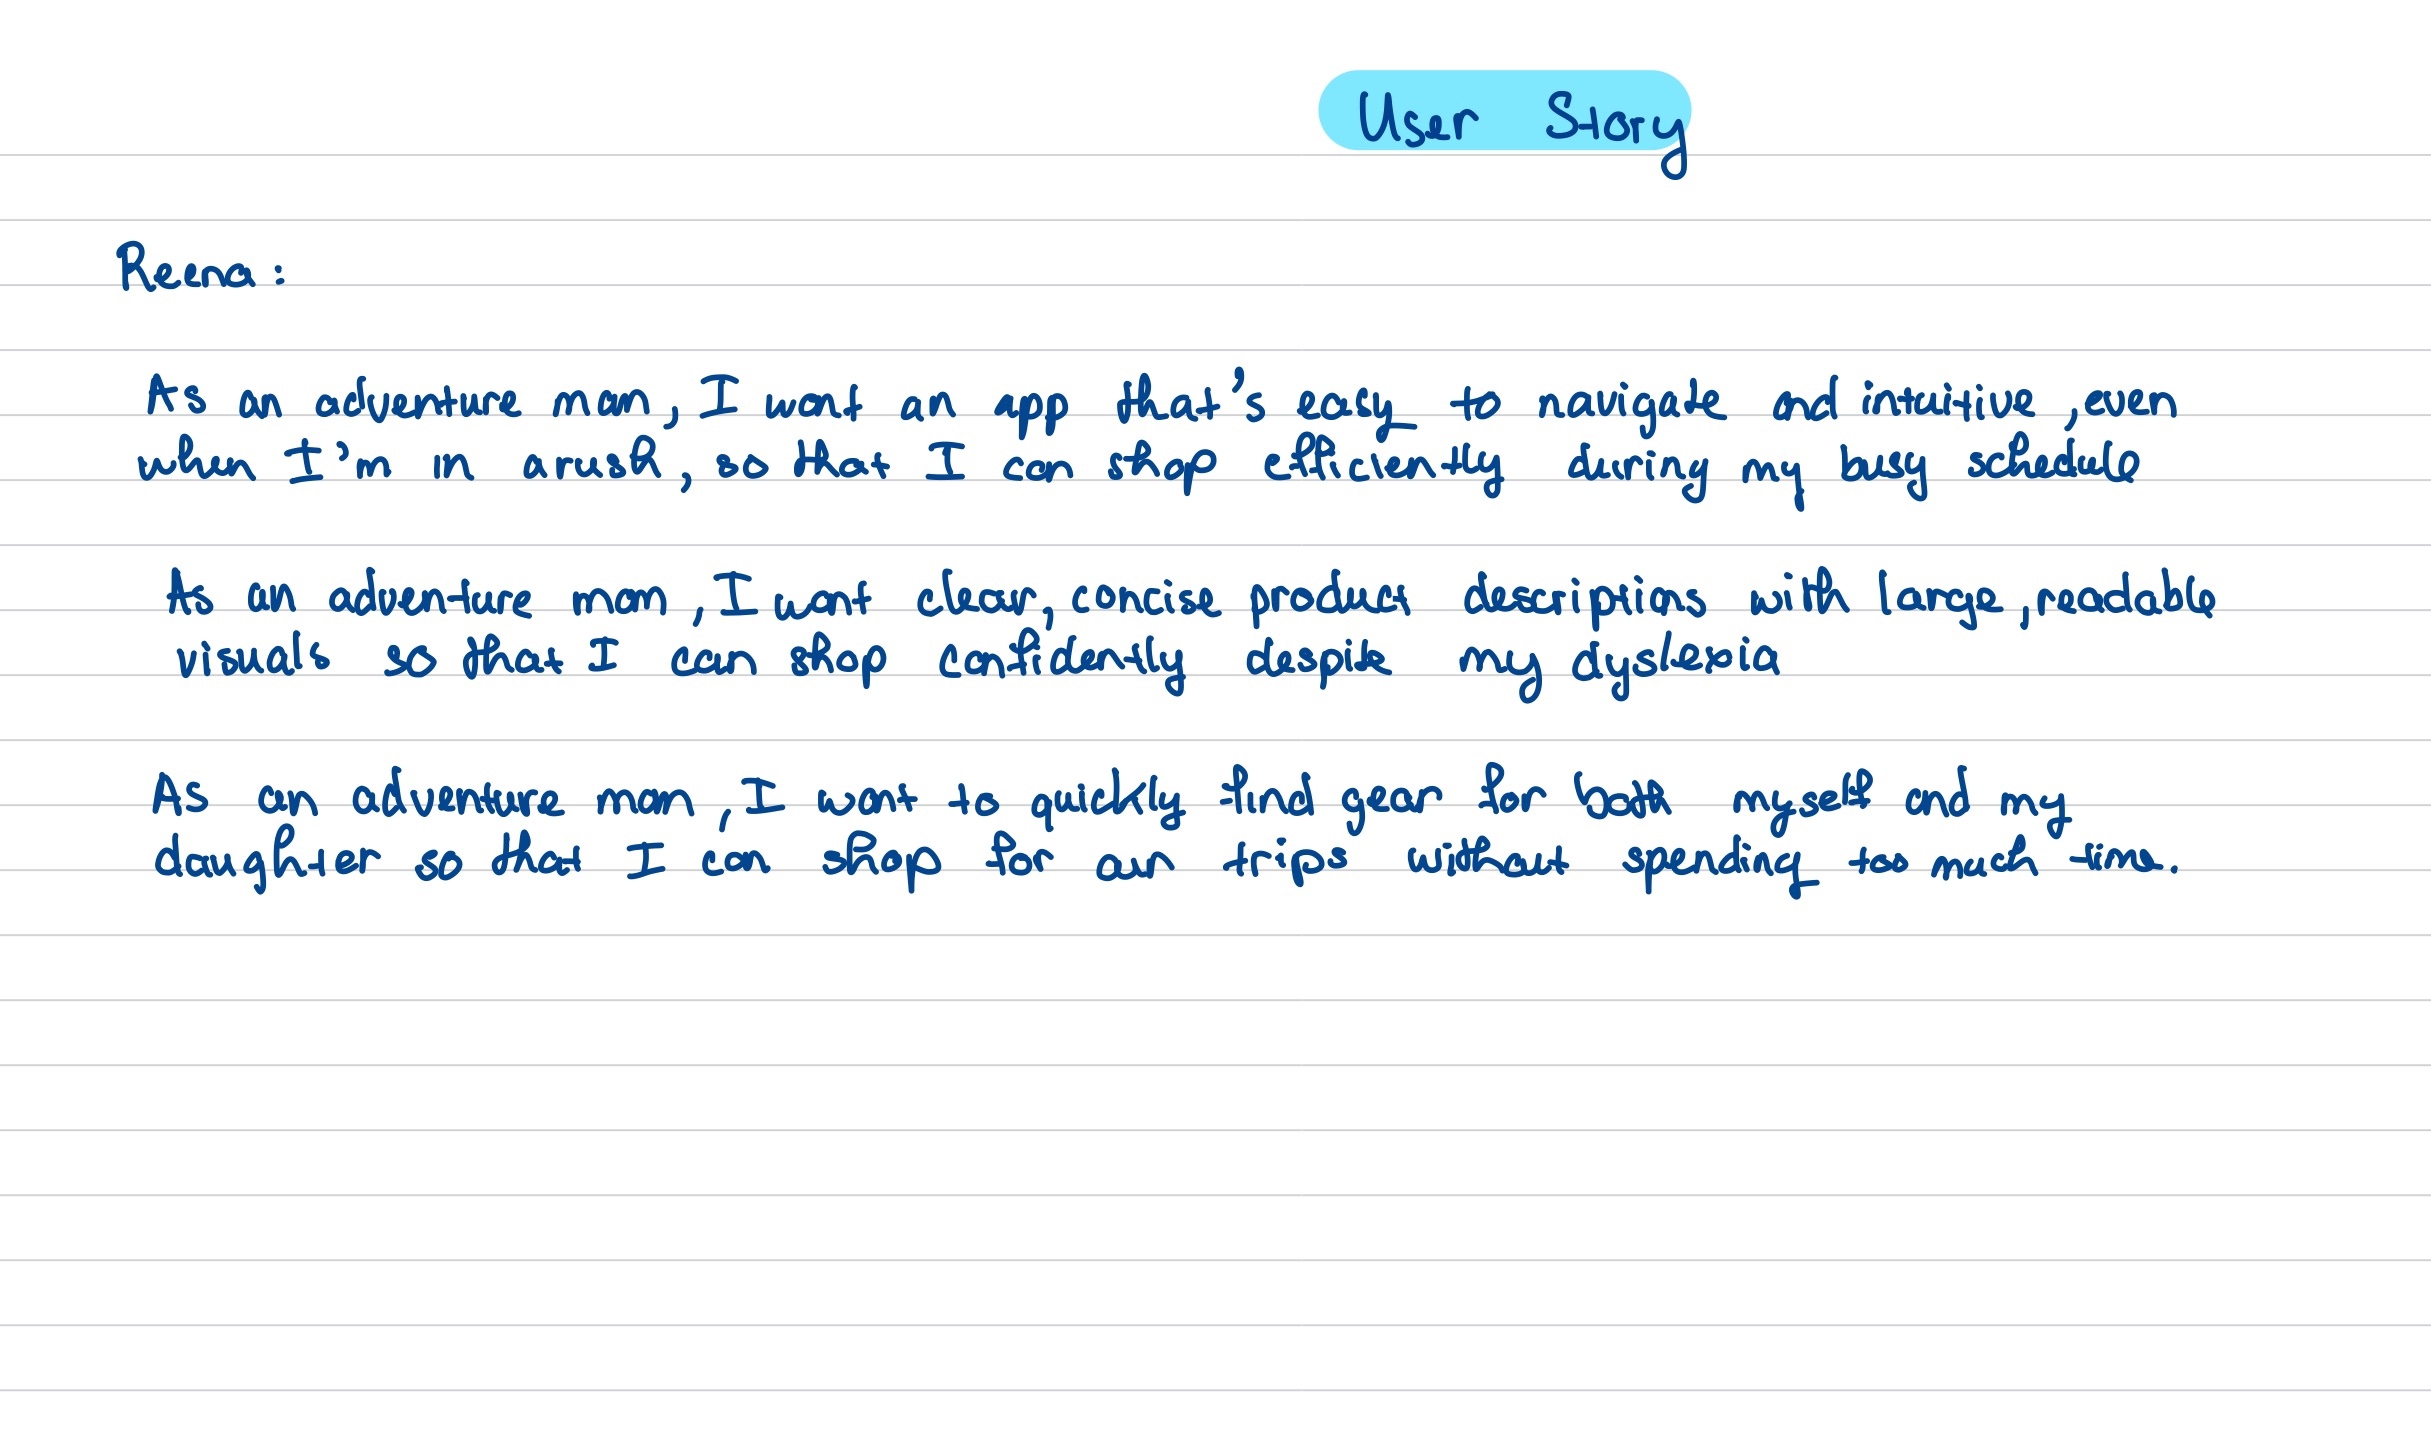 User Story
Reena:
As an adventure mom, I want an app that's easy to navigate and intuitive, even
when I'm in a rush, so that I can shop efficiently during my busy schedule
As an adventure mom, I want clear, concise product descriptions with large, readable
visuals so that I can shop confidently despite my dyslexia
As an adventure mom, I want to quickly find gear for both myself and my
daughter so that I can shop for our trips without spending too much time.